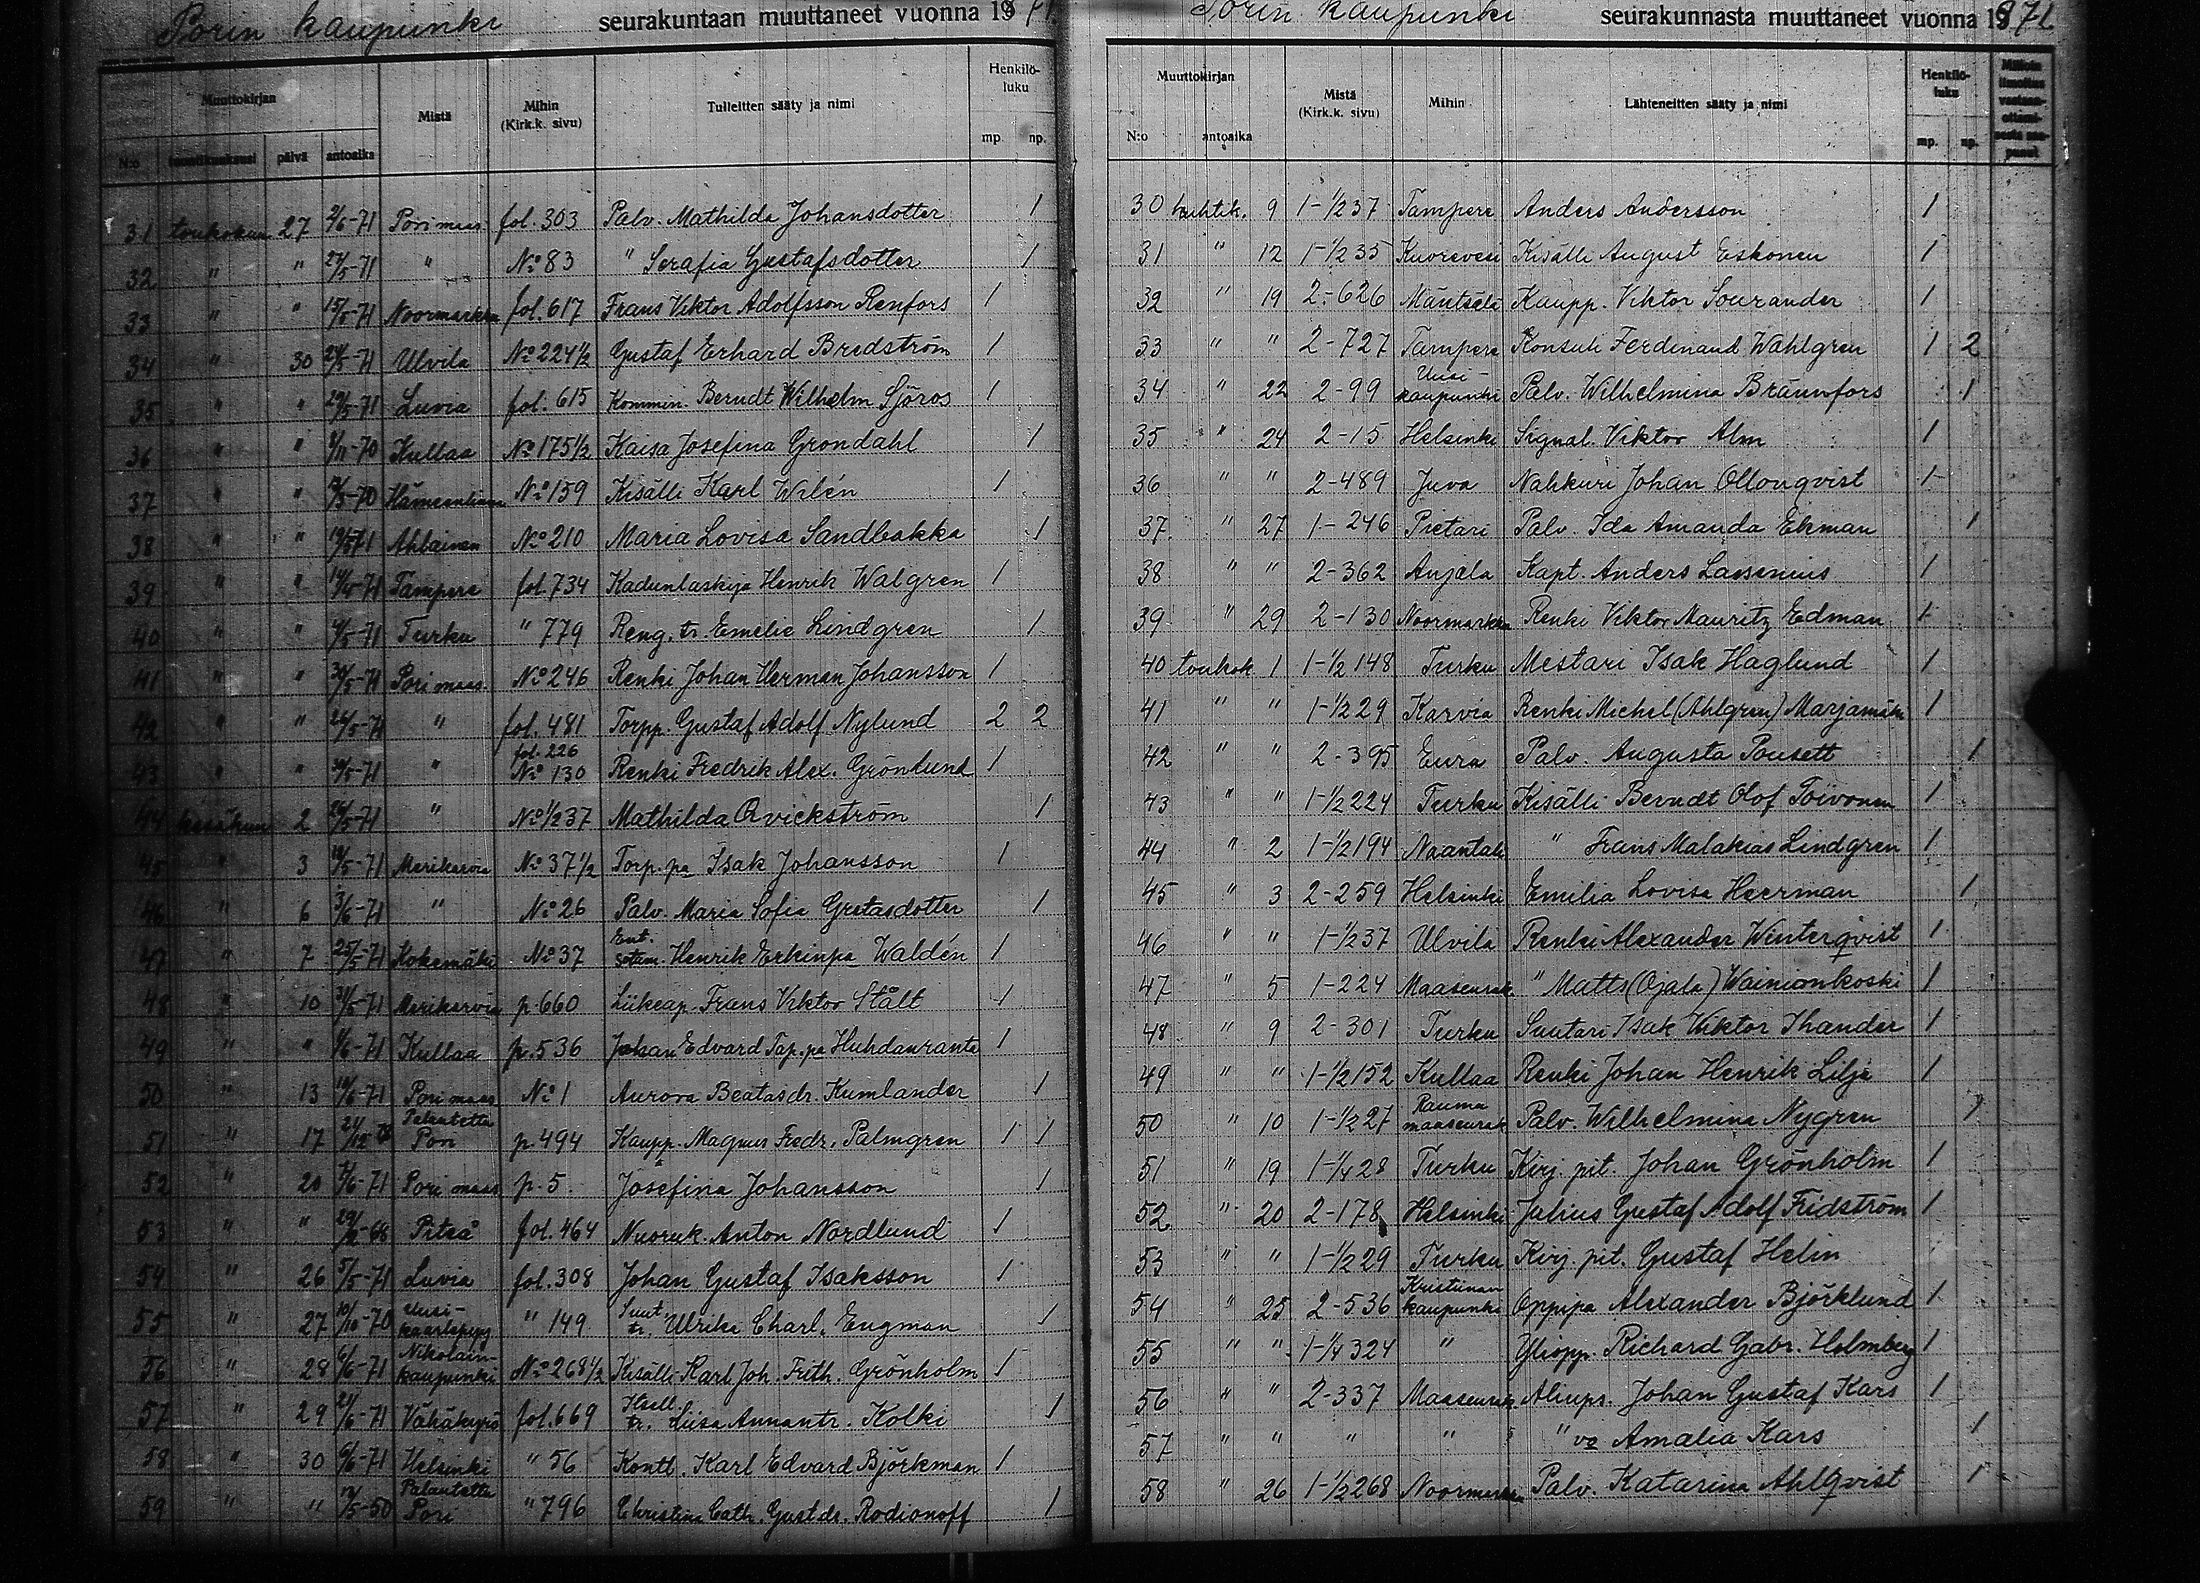 Porin kaupunki seurakuntaan muuttaneet vuonna 1871
Muuttokirjan
Mistä
Mihin (Kirk.k. sivu)
Tulleitten sääty ja nimi
Henkilöluku
N:o päivä antoaika mp. np.
31 toukokuu 27 2/6-71 Pori maas fol. 303 Palv. Mathilda Johansdotter 1
32 " " 27/5-71 " No 83 " Serafia Gustafsdotter 1
33 " " 15/5-71 Noormarkku fol. 617 Frans Viktor Adolfsson Renfors 1
34 " 30 24/5-71 Ulvila No 224 1/2 Gustaf Erhard Bredström 1
35 " " 29/5-71 Luvia fol. 615 Kommin. Berndt Wilhelm Sjöros 1
36 " " /11-70 Kullaa No 175 1/2 Kaisa Josefina Grondahl 1
37 " " /5-70 Hämeenlinna No 159 Kisälli Karl Wilén 1
38 " " 19/5-71 Ahlainen No 210 Maria Lovisa Sandbakka 1
39 " " 14/4-71 Tampere fol. 734 Kadunlaskija Henrik Walgren 1
40 " " /5-71 Turku " 779 Reng. tr. Emelie Lindgren 1
41 " " 30/5-71 Pori maas. No 246 Renki Johan Herman Johansson 1
42 " " 26/5-71 " fol. 481 Torpp. Gustaf Adolf Nylund 2 2
43 " " 30/5-71 " fol. 226 No 130 Renki Fredrik Alex. Grönlund 1
44 kesäkuu 2 26/5-71 " No 1/2 37 Mathilda Qvickström 1
45 " 3 19/5-71 Merikarvia No 37 1/2 Torp. pa Isak Johansson 1
46 " 6 3/6-71 " No 26 Palv. Maria Sofia Gretasdotter 1
47 " 7 25/5-71 Kokemäki No 37 Ent. sotam. Henrik Erkinpa Waldén 1
48 " 10 31/5-71 Merikarvia p. 660 Liikeap. Frans Viktor Stålt 1
49 " " /6-71 Kullaa p. 536 Johan Edvard Tap. pa Huhdanranta 1
50 " 13 10/6-71 Pori maas No 1 Aurora Beatasdr. Kumlander 1
51 " 17 24/12- Palautettu Pori p. 494 Kaupp. Magnus Fredr. Palmgren 1 1
52 " 20 /6-71 Pori maas p. 5. Josefina Johansson 1
53 " " 29/ -68 Piteå fol. 464 Nuoruk. Anton Nordlund 1
54 " 26 5/5-71 Luvia fol. 308 Johan Gustaf Isaksson 1
55 " 27 10/10-70 Uusi-kaarlepyy " 149 Suut. tr. Ulrika Charl. Engman 1
56 " 28 6/6-71 Nikolain-kaupunki No 268 1/2 Kisälli Karl Joh. Frith. Grönholm 1
57 " 29 21/6-71 Vähäkyrö fol. 669 Itsell. tr. Liisa Annantr. Kolki 1
58 " 30 /6-71 Helsinki " 56 Kontt. Karl Edvard Björkman 1
59 " " 13/5-50 Palautettu Pori " 796 Christina Cath. Gustdr. Rodionoff 1
Porin kaupunki seurakunnasta muuttaneet vuonna 1871
Muuttokirjan
Mistä (Kirk.k. sivu)
Mihin
Lähteneitten sääty ja nimi
Henkilöluku
N:o antoaika mp. np.
30 huhtik. 9 1-1/2 37 Tampere Anders Andersson 1
31 " 12 1-1/2 35 Kuorevesi Kisälli August Eskonen 1
32 " 19 2-626 Mäntsälä Kaupp. Viktor Sourander 1
33 " " 2-727 Tampere Konsuli Ferdinand Wahlgren 1 2
34 " 22 2-99 Uusi-kaupunki Palv. Wilhelmina Braunfors 1
35 " 24 2-15 Helsinki Signal. Viktor Alm 1
36 " " 2-489 Juva Nahkuri Johan Ollonqvist 1
37. " 27 1-246 Pietari Palv. Ida Amanda Ekman 1
38 " " 2-362 Anjala Kapt. Anders Laesenius 1
39 " 29 2-130 Noormarkku Renki Viktor Mauritz Edman 1
40 toukok 1 1-1/2 148 Turku Mestari Isak Haglund 1
41 " " 1-1/2 29 Karvia Renki Michel (Ahlgren) Marjamäki 1
42 " " 2-395 Eura Palv. Augusta Pousett 1
43 " " 1-1/2 224 Turku Kisälli Berndt Olof Toivonen 1
44 " 2 1-1/2 194 Naantali " Frans Malakias Lindgren 1
45 " 3 2-259 Helsinki Emilia Lovisa Heerman 1
46 " " 1-1/2 37 Ulvila Renki Alexander Winterqvist 1
47 " 5 1-224 Maaseurak. " Matts (Ojala) Wainionkoski 1
48 " 9 2-301 Turku Suutari Isak Viktor Thander 1
49 " " 1-1/2 152 Kullaa Renki Johan Henrik Lilja 1
50 " 10 1-1/2 27 Rauma maaseurak Palv. Wilhelmina Nygren 1
51 " 19 1-1/4 28 Turku Kirj. pit. Johan Grönholm 1
52 " 20 2-178 Helsinki Julius Gustaf Adolf Fridström 1
53 " " 1-1/2 29 Turku Kirj. pit. Gustaf Helin
54 " 25 2-536 Kristiinan kaupunki Oppipa Alexander Björklund 1
55 " " 1-1/4 324 " Yliopp. Richard Gabr. Holmberg 1
56 " " 2-337 Maaseurak Aliups. Johan Gustaf Kars 1
57 " " " " " vo Amalia Kars 1
58 " 26 1-1/2 268 Noormarkku Palv. Katarina Ahlqvist 1